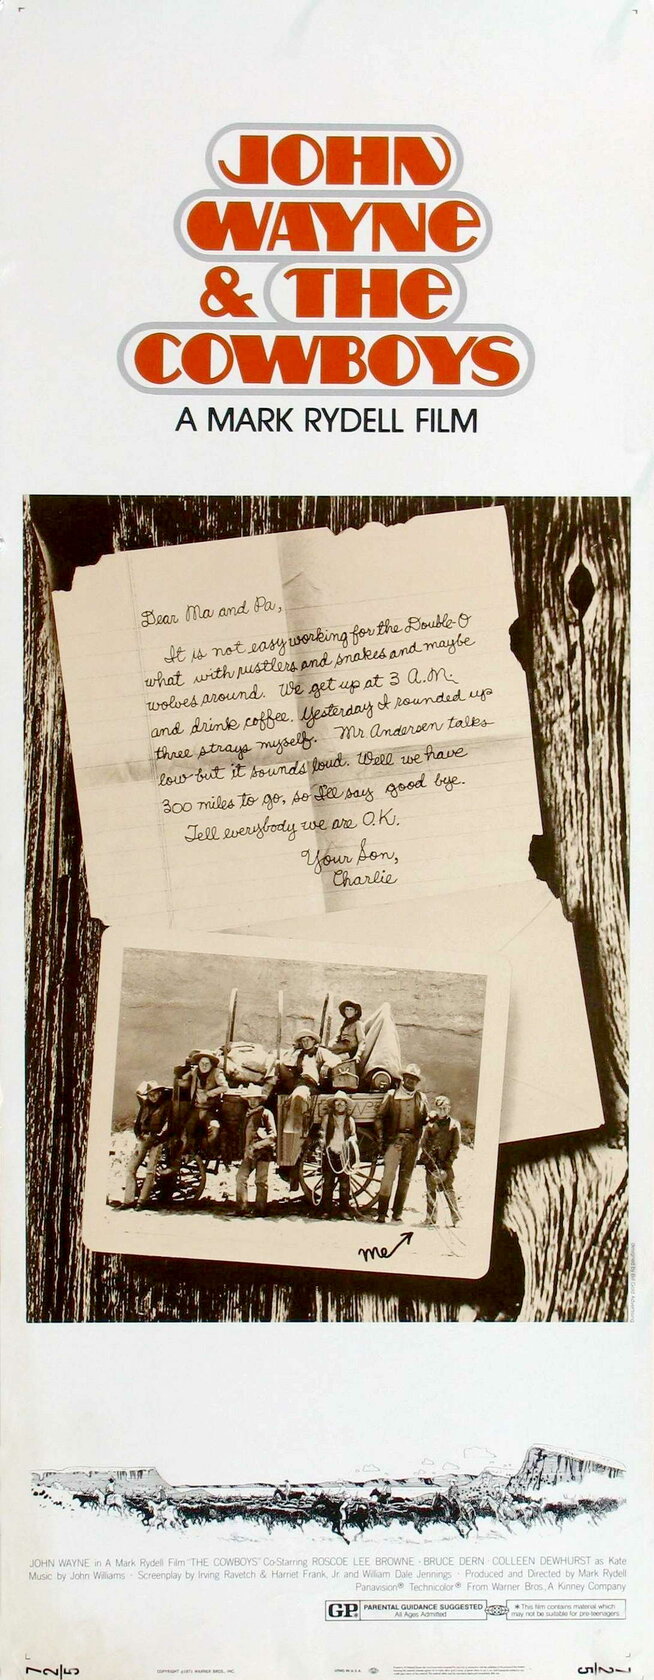 JOHN
WAYNE
& THE
COWBOYS
A MARK RYDELL FILM
Dear Ma and Pa,
It is not easy working for the Double-O
what with rustlers and snakes and maybe
wolves around. We get up at 3 A.M.
and drink coffee. Yesterday I rounded up
three strays myself. Mr Andersen talks
low but it sounds loud. Well we have
300 miles to go, so I'll say good bye.
Tell everybody we are O.K.
Your Son,
Charlie
me
JOHN WAYNE in A Mark Rydell Film "THE COWBOYS" Co-Starring ROSCOE LEE BROWNE · BRUCE DERN · COLLEEN DEWHURST as Kate
Music by John Williams · Screenplay by Irving Ravetch & Harriet Frank, Jr. and William Dale Jennings · Produced and Directed by Mark Rydell
Panavision® Technicolor® From Warner Bros., A Kinney Company
GP PARENTAL GUIDANCE SUGGESTED
All Ages Admitted
* This film contains material which
may not be suitable for pre-teenagers
72/5
COPYRIGHT ©1971 WARNER BROS., INC.